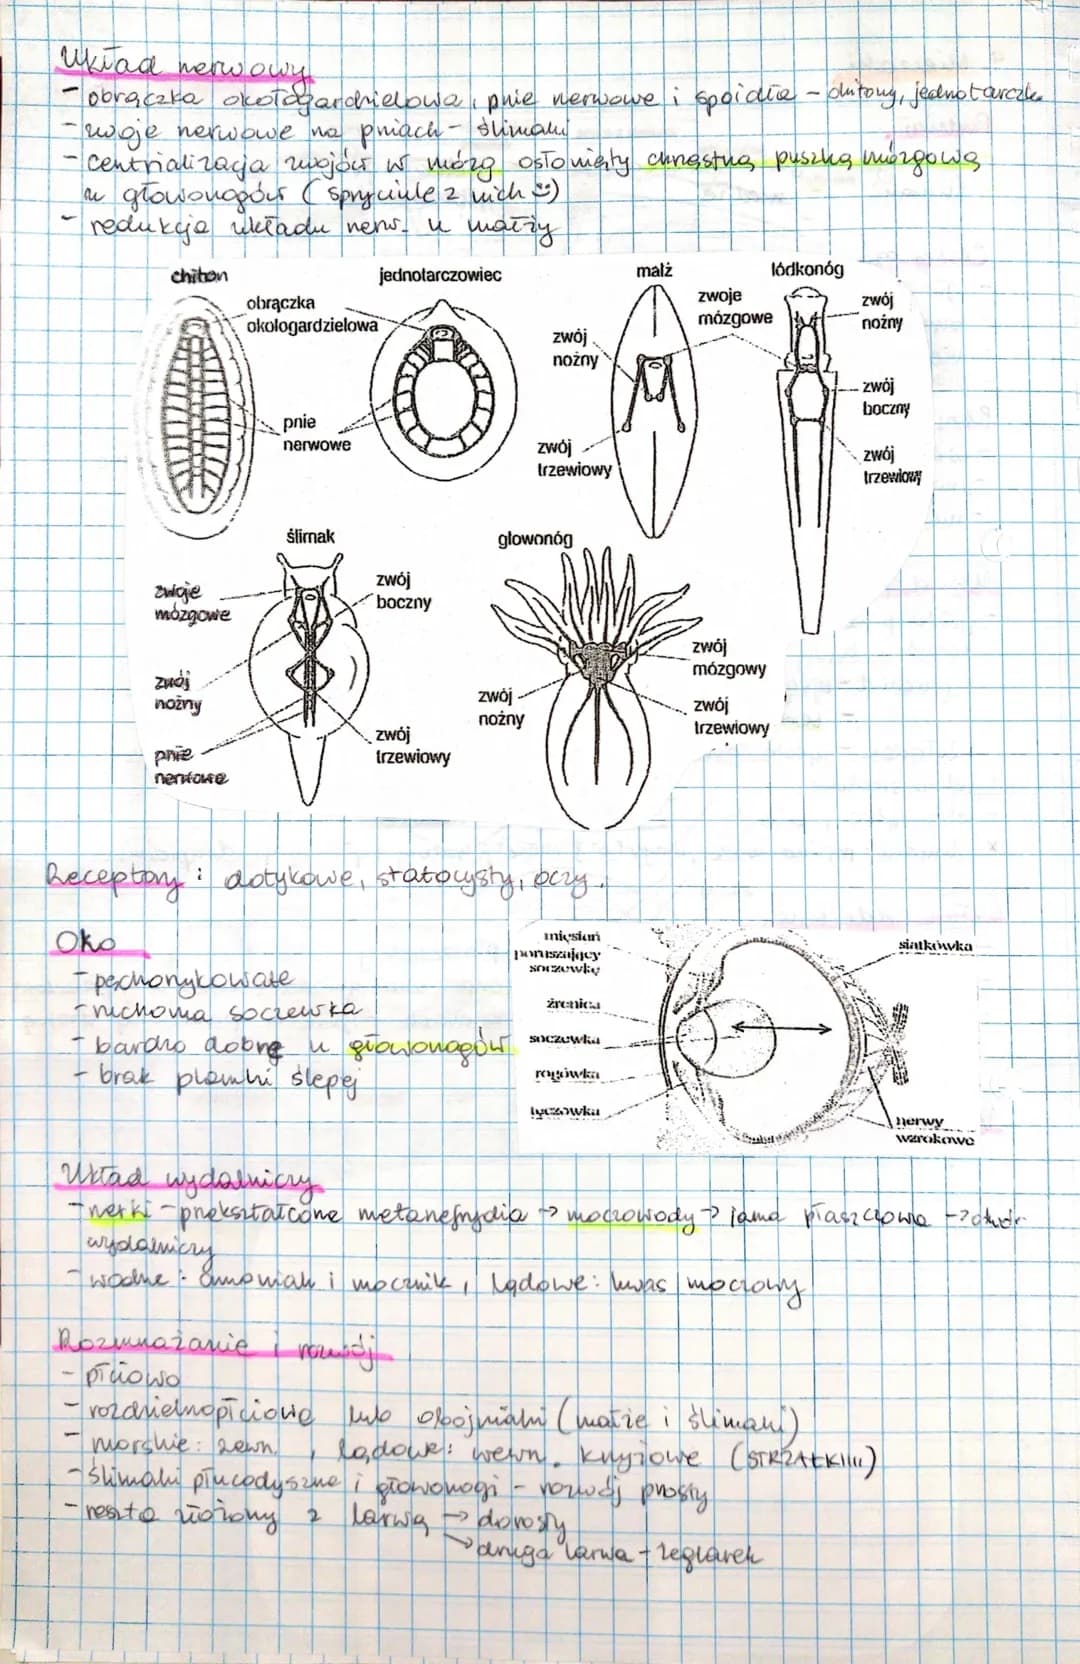 Układ nerwowy
- obrączka okołogardzielowa, pnie nerwowe i spoidła - chitony, jednotarczk.
- zwoje nerwowe na pniach - ślimaki
- centralizacja zwojów w mózg osłonięty chrzęstną puszką mózgową
u głowonogów (spryciule z nich :))
- redukcja układu nerw. u małży
chiton
jednotarczowiec
małż
łódkonóg
obrączka
okołogardzielowa
pnie
nerwowe
zwój
nożny
zwój
trzewiowy
zwoje
mózgowe
zwój
nożny
zwój
boczny
zwój
trzewiowy
ślimak
głowonóg
zwoje
mózgowe
zwój
nożny
pnie
nerwowe
zwój
boczny
zwój
trzewiowy
zwój
nożny
zwój
mózgowy
zwój
trzewiowy
Receptory: dotykowe, statocysty, oczy.
Oko
- pęcherzykowate
- ruchoma soczewka
- bardzo dobre u głowonogów
- brak plamki ślepej
mięsień
poruszający
soczewkę
źrenica
soczewka
rogówka
tęczówka
siatkówka
nerwy
wzrokowe
Układ wydalniczy
- nerki - przekształcone metanefrydia → moczowody → jama płaszczowa → otwór
wydalniczy
- wodne: amoniak i mocznik, lądowe: kwas moczowy
Rozmnażanie i rozwój
- płciowo
- rozdzielnopłciowe lub obojniaki (małże i ślimaki)
- morskie: zewn., lądowe: wewn. krzyżowe (STRZAŁKI!!!)
- ślimaki płucodyszne i głowonogi - rozwój prosty
- reszta złożony z larwą → dorosły
→ druga larwa - żeglarek